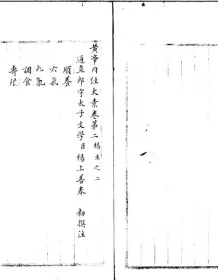 黄帝内经太素卷第二摄生之二
通直郎守太子文学臣杨上善奉 勅撰注
顺养
六氣
九氣
調食
壽限